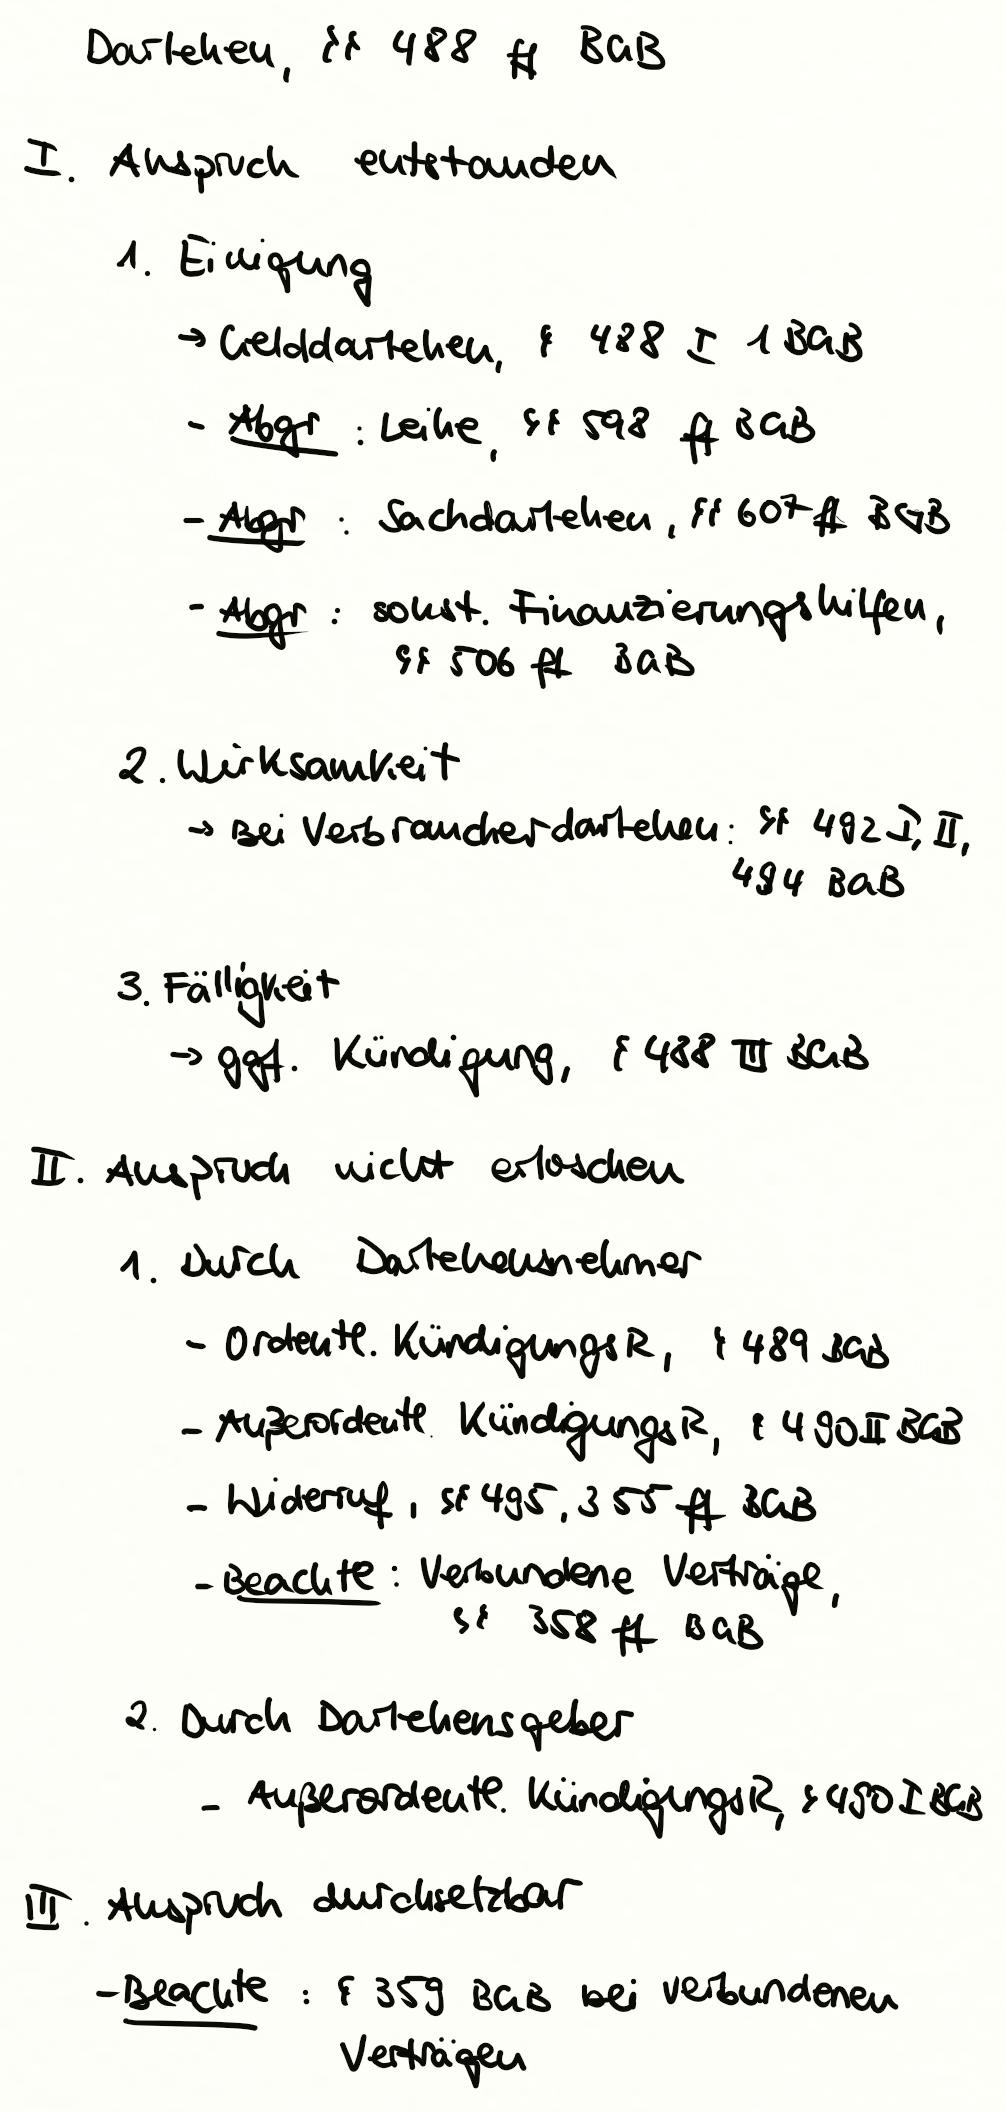 Darlehen, §§ 488 ff BGB
I. Anspruch entstanden
1. Einigung
→ Gelddarlehen, § 488 I 1 BGB
- Abgr : Leihe, §§ 598 ff BGB
- Abgr : Sachdarlehen, §§ 607 ff BGB
- Abgr : sonst. Finanzierungshilfen,
§§ 506 ff BGB
2. Wirksamkeit
→ Bei Verbraucherdarlehen: §§ 492 I, II,
494 BGB
3. Fälligkeit
→ ggf. Kündigung, § 488 III BGB
II. Anspruch nicht erloschen
1. Durch Darlehensnehmer
- Ordentl. KündigungsR, § 489 BGB
- Außerordentl. KündigungsR, § 490 II BGB
- Widerruf, §§ 495, 355 ff BGB
- Beachte : Verbundene Verträge,
§§ 358 ff BGB
2. Durch Darlehensgeber
- Außerordentl. KündigungsR, § 490 I BGB
III. Anspruch durchsetzbar
- Beachte : § 359 BGB bei verbundenen
Verträgen